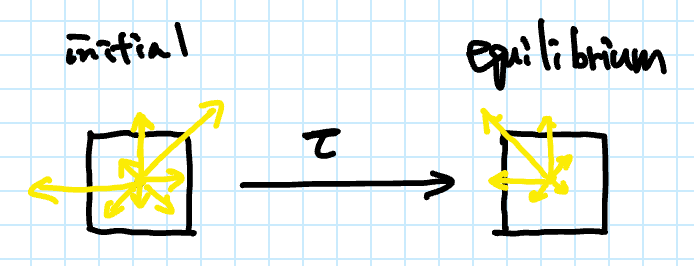 initial
equilibrium
τ